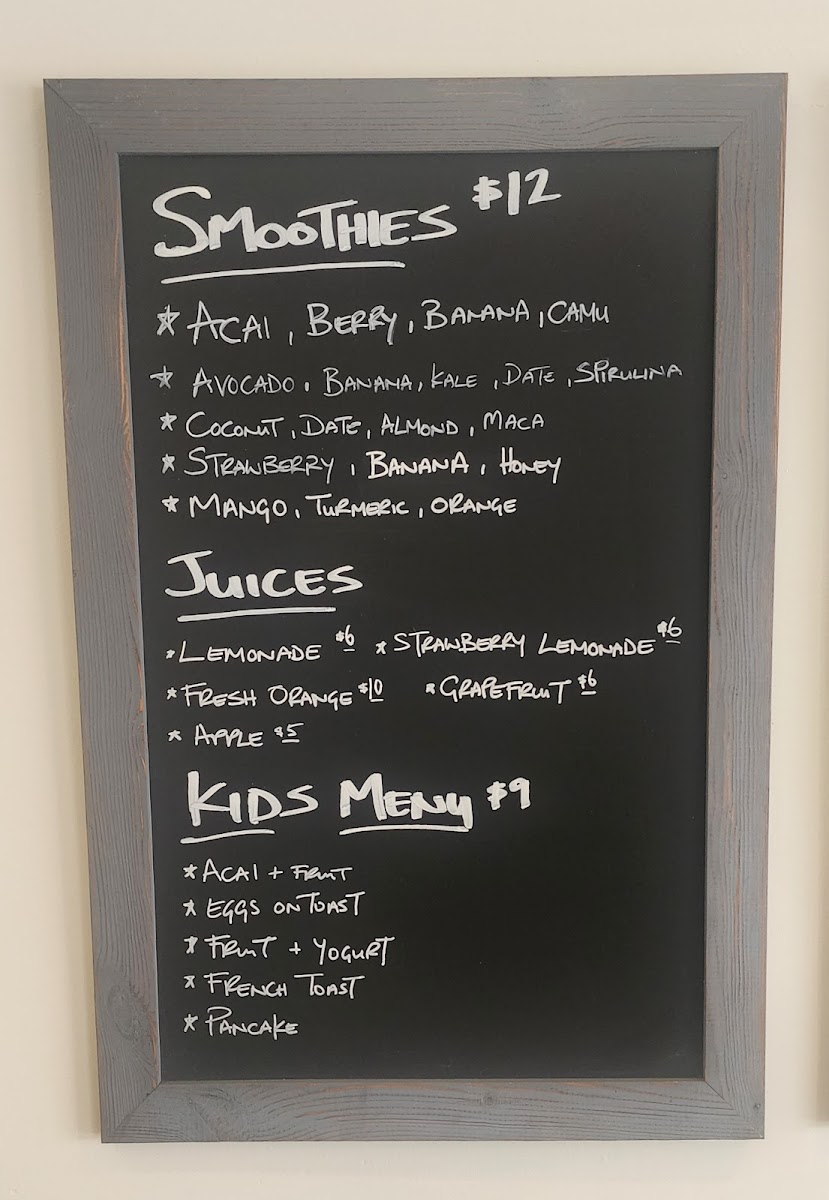 SMOOTHIES $12
* ACAI, BERRY, BANANA, CAMU
* AVOCADO, BANANA, KALE, DATE, SPIRULINA
* COCONUT, DATE, ALMOND, MACA
* STRAWBERRY, BANANA, HONEY
* MANGO, TURMERIC, ORANGE
JUICES
* LEMONADE $6 * STRAWBERRY LEMONADE $6
* FRESH ORANGE $10 * GRAPEFRUIT $6
* APPLE $5
KIDS MENU $9
* ACAI + FRUIT
* EGGS ON TOAST
* FRUIT + YOGURT
* FRENCH TOAST
* PANCAKE